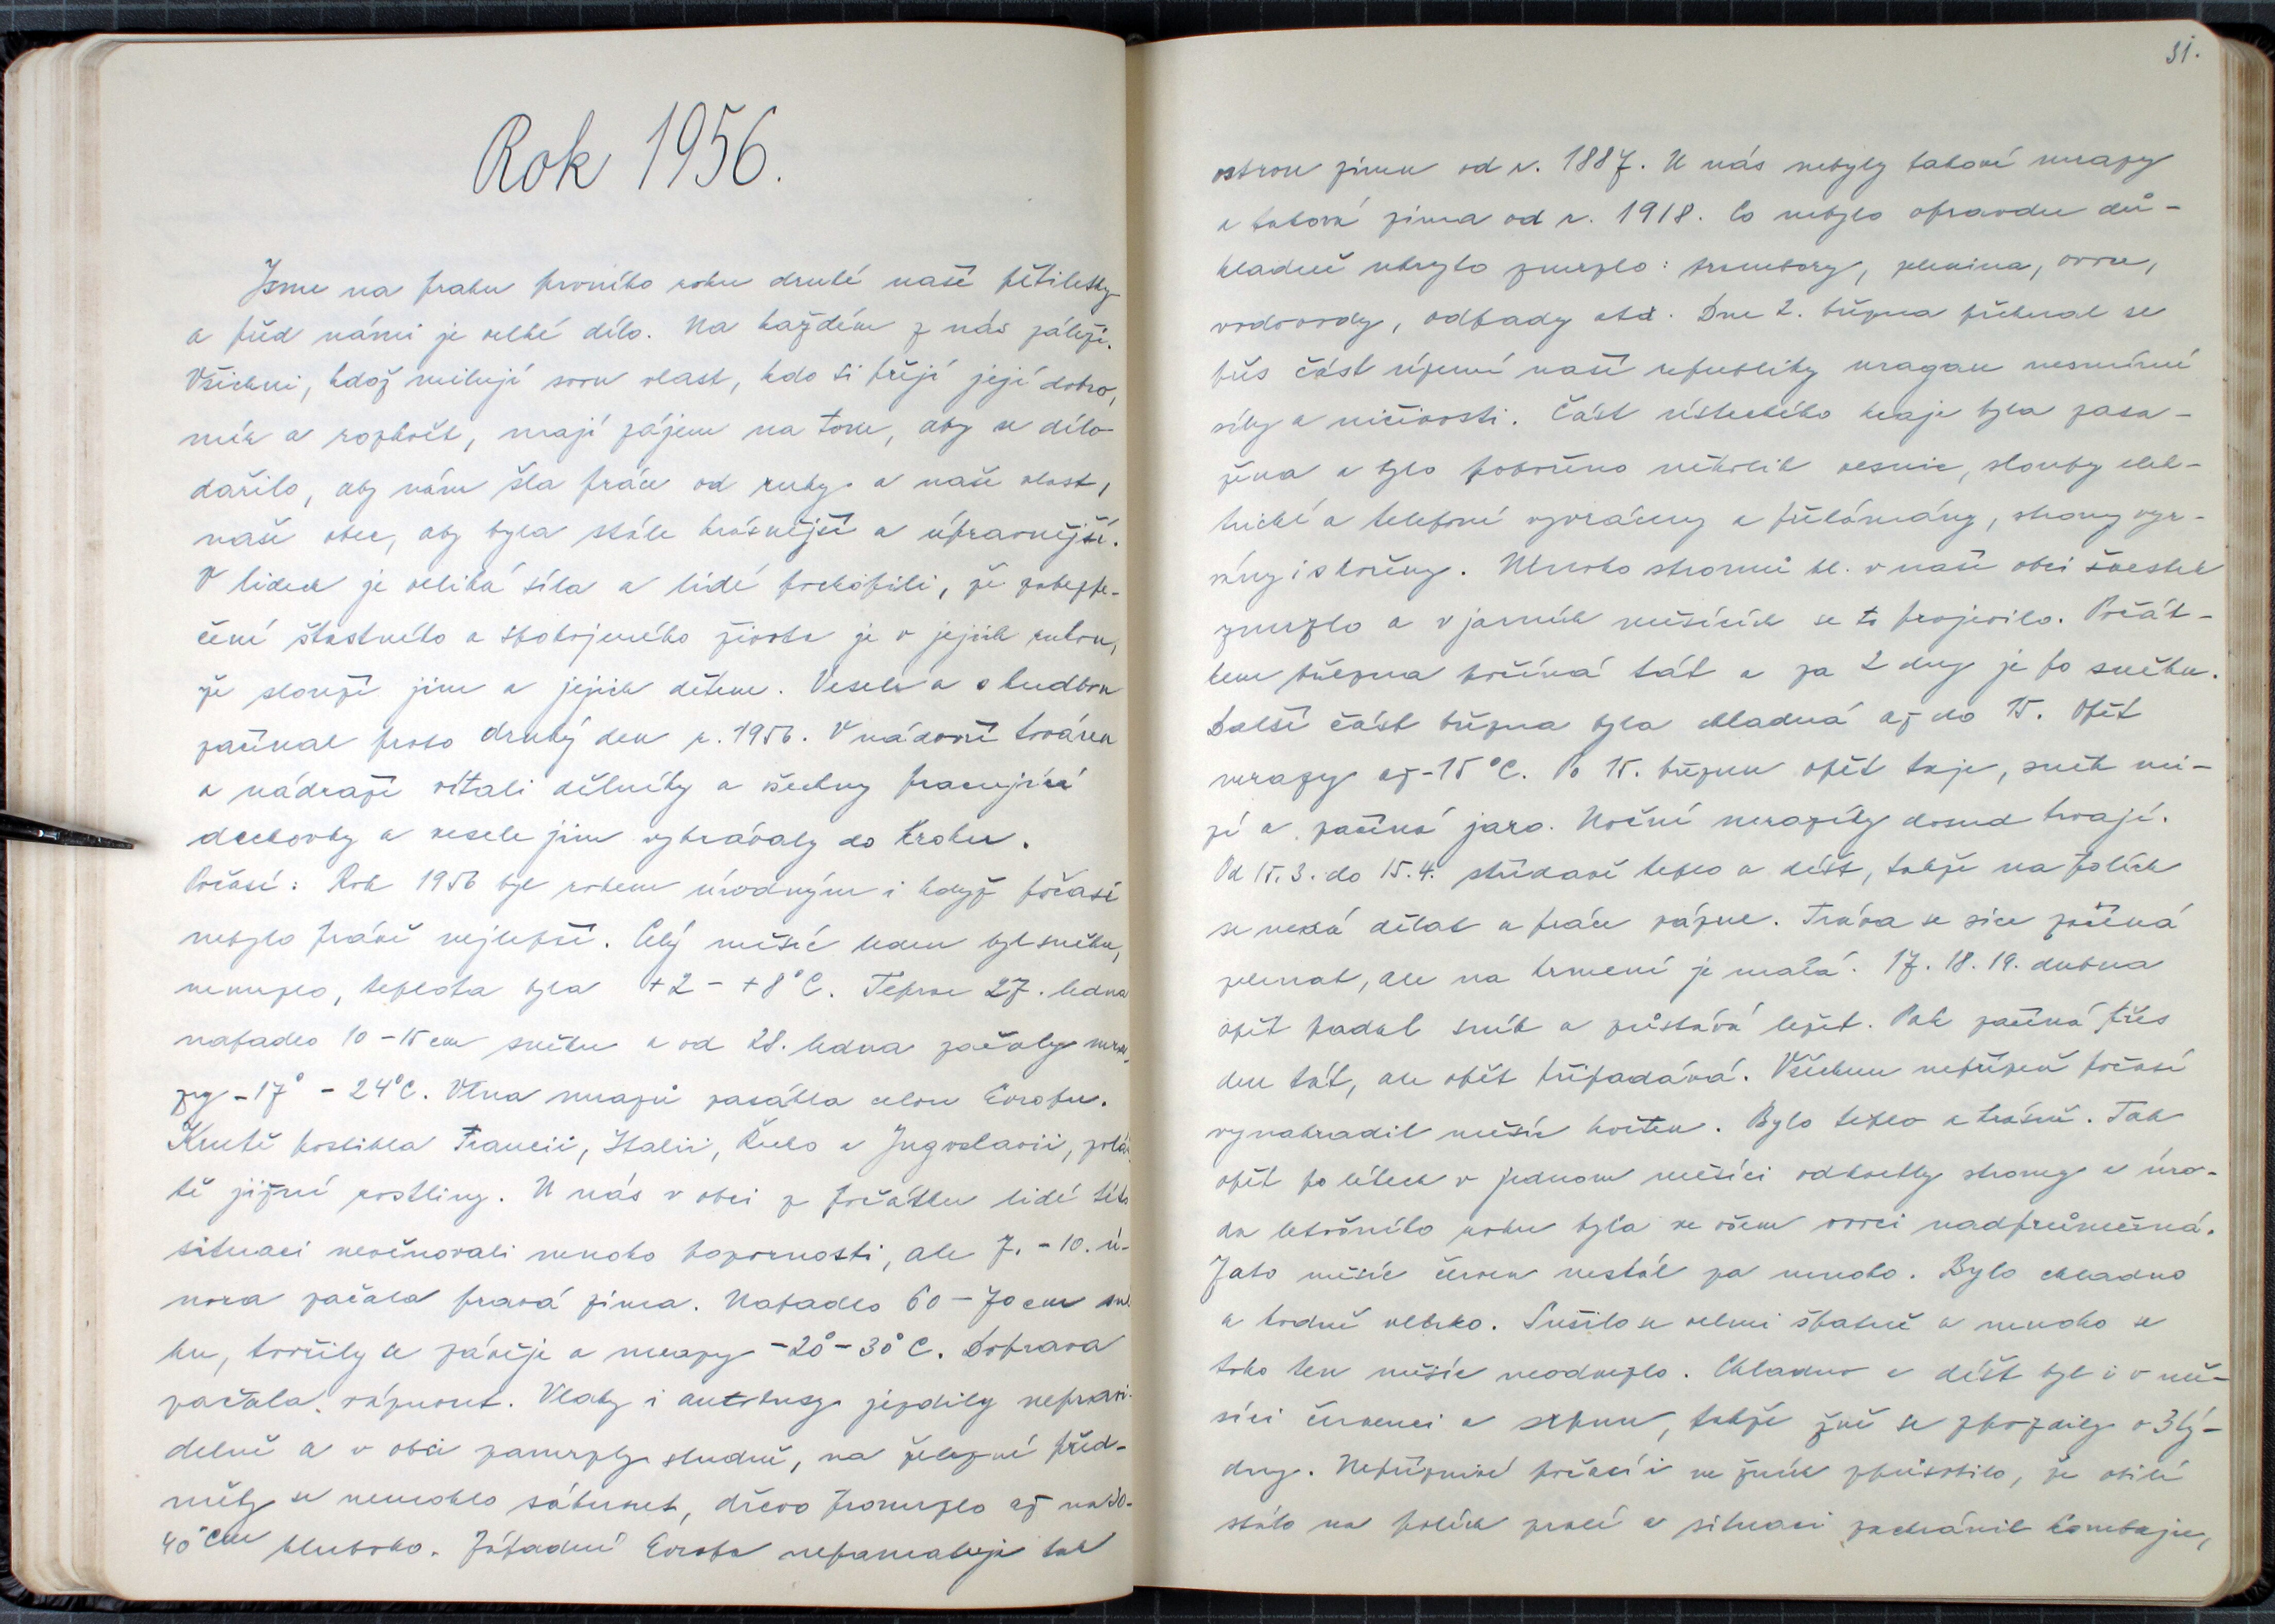 Rok 1956.
Jsme na prahu prvního roku druhé naší pětiletky
a před námi je velké dílo. Na každém z nás záleží.
Všichni, kdož milují svou vlast, kdo si přejí její dobro,
mír a rozkvět, mají zájem na tom, aby se dílo
dařilo, aby nám šla práce od ruky a naše vlast,
naše obec, aby byla stále krásnější a úpravnější.
V lidech je veliká síla a lidé pochopili, že zabezpe-
čení šťastného a spokojeného života je v jejich rukou,
že slouží jim a jejich dětem. Vesele a s hudbou
začínal proto druhý den r. 1956. V nádvoří továren
a nádraží vítali dělníky a všechny pracující
dechovky a vesele jim vyhrávaly do kroku.
Počasí: Rok 1956 byl rokem úrodným i když počasí
nebylo právě nejlepší. Celý měsíc leden byl sněhu,
nemrzlo, teplota byla +2 - +8°C. Teprve 27. ledna
napadlo 10-15 cm sněhu a od 28. ledna začaly mra-
zy -17° - 24°C. Vlna mrazů zasáhla celou Evropu.
Krutě postihla Francii, Italii, Řecko a Jugoslavii, zvlá-
tě jižní rostliny. U nás v obci z počátku lidé této
situaci nevěnovali mnoho pozornosti, ale 7. - 10. ú-
nora začala pravá zima. Napadlo 60-70 cm sně
hu, tvořily se závěje a mrazy -20° - 30°C. Doprava
začala váznout. Vlaky i autobusy jezdily nepravi-
delně a v obci zamrzly studně, na železné před-
měty se nemohlo sáhnout, dřevo promrzlo až na 30-
40 cm hluboko. Západní Evropa nepamatuje tak
31.
ostrou zimu od r. 1887. U nás nebyly takové mrazy
a taková zima od r. 1918. Co nebylo opravdu dů-
kladně ukryto zmrzlo: brambory, zelenina, ovoce,
vodovody, odpady atd. Dne 2. března přehnal se
přes část území naší republiky uragan nesmírné
síly a ničivosti. Část ústeckého kraje byla zasa-
žena a bylo pobořeno několik vesnic, sloupy elek-
trické a telefonní vyvráceny a přelámány, stromy vyr-
vány i s kořeny. Mnoho stromů hl. v naší obci švestek
zmrzlo a v jarních měsících se to projevilo. Počát-
kem března počíná tát a za 2 dny je po sněhu.
Další část března byla chladná až do 15. Opět
mrazy až -15°C. Po 15. březnu opět taje, sníh mi-
zí a začíná jaro. Noční mrazíky dosud trvají.
Od 15.3. do 15.4. střídavě teplo a déšť, takže na polích
se nedá dělat a práce vázne. Tráva se sice počíná
zelenat, ale na krmení je malá. 17. 18. 19. dubna
opět padal sníh a zůstává ležet. Pak začíná přes
den tát, ale opět připadává. Všechnu nepřízeň počasí
vynahradil měsíc květen. Bylo teplo a krásně. Tak
opět po létech v jednom měsíci odkvetly stromy a úro-
da letošního roku byla ve všem ovoci nadprůměrná.
Zato měsíc červen nestál za mnoho. Bylo chladno
a hodně vlhko. Sušilo se velmi špatně a mnoho se
toho ten měsíc neodvezlo. Chladno a déšť byl i v mě-
síci červenci a srpnu, takže žně se zpozdily o 3 tý-
dny. Nepříznivé počasí i ve žních způsobilo, že obilí
stálo na polích zralé a situaci zachránil kombajn,